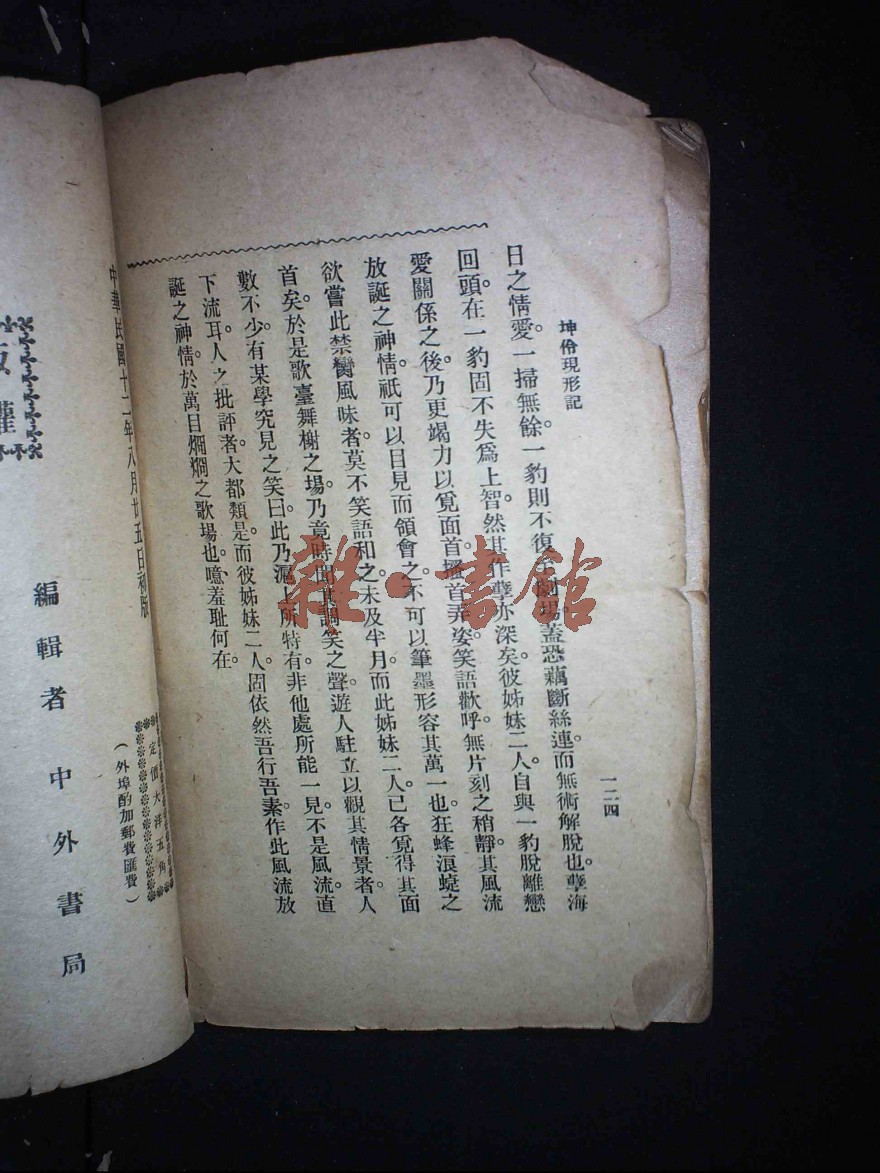 坤伶現形記
一二四
日之情愛。一掃無餘。一豹則不復至劇場。蓋恐藕斷絲連。而無術解脫也。孽海
回頭。在一豹固不失爲上智。然其作孽亦深矣。彼姊妹二人。自與一豹脫離戀
愛關係之後。乃更竭力以覓面首。搔首弄姿。笑語歡呼。無片刻之稍靜。其風流
放誕之神情。祇可以目見而領會之。不可以筆墨形容其萬一也。狂蜂浪蜨之
欲嘗此禁臠風味者。莫不笑語和之。未及半月。而此姊妹二人。已各覓得其面
首矣。於是歌臺舞榭之場。乃竟時聞其調笑之聲。遊人駐立以觀其情景者。人
數不少。有某學究見之笑曰。此乃滬上所特有。非他處所能一見。不是風流直
下流耳。人之批評者。大都類是。而彼姊妹二人。固依然吾行吾素。作此風流放
誕之神情。於萬目烱烱之歌場也。噫。羞耻何在。
雜·書館
中華民國十二年八月廿五日初版
定價大洋五角
(外埠酌加郵費匯費)
編輯者 中外書局
權